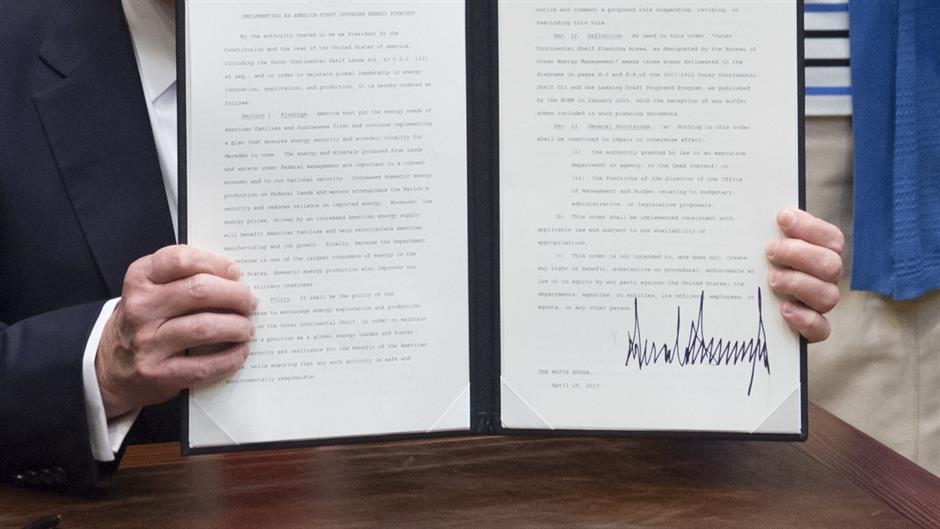 IMPLEMENTING AN AMERICA-FIRST OFFSHORE ENERGY STRATEGY
By the authority vested in me as President by the
Constitution and the laws of the United States of America,
including the Outer Continental Shelf Lands Act, 43 U.S.C. 1331
et seq., and in order to maintain global leadership in energy
innovation, exploration, and production, it is hereby ordered as
follows:
Section 1. Findings. America must put the energy needs of
American families and businesses first and continue implementing
a plan that ensures energy security and economic vitality for
decades to come. The energy and minerals produced from lands
and waters under Federal management are important to a vibrant
economy and to our national security. Increased domestic energy
production on Federal lands and waters strengthens the Nation's
security and reduces reliance on imported energy. Moreover, low
energy prices, driven by an increased American energy supply,
will benefit American families and help reinvigorate American
manufacturing and job growth. Finally, because the Department
efense is one of the largest consumers of energy in the
States, domestic energy production also improves our
military readiness.
Policy. It shall be the policy of the
ates to encourage energy exploration and production,
on the Outer Continental Shelf, in order to maintain
n's position as a global energy leader and foster
security and resilience for the benefit of the American
, while ensuring that any such activity is safe and
environmentally responsible.
notice and comment a proposed rule suspending, revising, or
rescinding this rule.
Sec. 12. Definition. As used in this order, "Outer
Continental Shelf Planning Areas, as designated by the Bureau of
Ocean Energy Management" means those areas delineated in the
diagrams on pages S-5 and S-8 of the 2017-2022 Outer Continental
Shelf Oil and Gas Leasing Draft Proposed Program, as published
by the BOEM in January 2015, with the exception of any buffer
zones included in such planning documents.
Sec. 13. General Provisions. (a) Nothing in this order
shall be construed to impair or otherwise affect:
(i) the authority granted by law to an executive
department or agency, or the head thereof; or
(ii) the functions of the Director of the Office
of Management and Budget relating to budgetary,
administrative, or legislative proposals.
(b) This order shall be implemented consistent with
applicable law and subject to the availability of
appropriations.
(c) This order is not intended to, and does not, create
any right or benefit, substantive or procedural, enforceable at
law or in equity by any party against the United States, its
departments, agencies, or entities, its officers, employees, or
agents, or any other person.
THE WHITE HOUSE,
April 28, 2017.